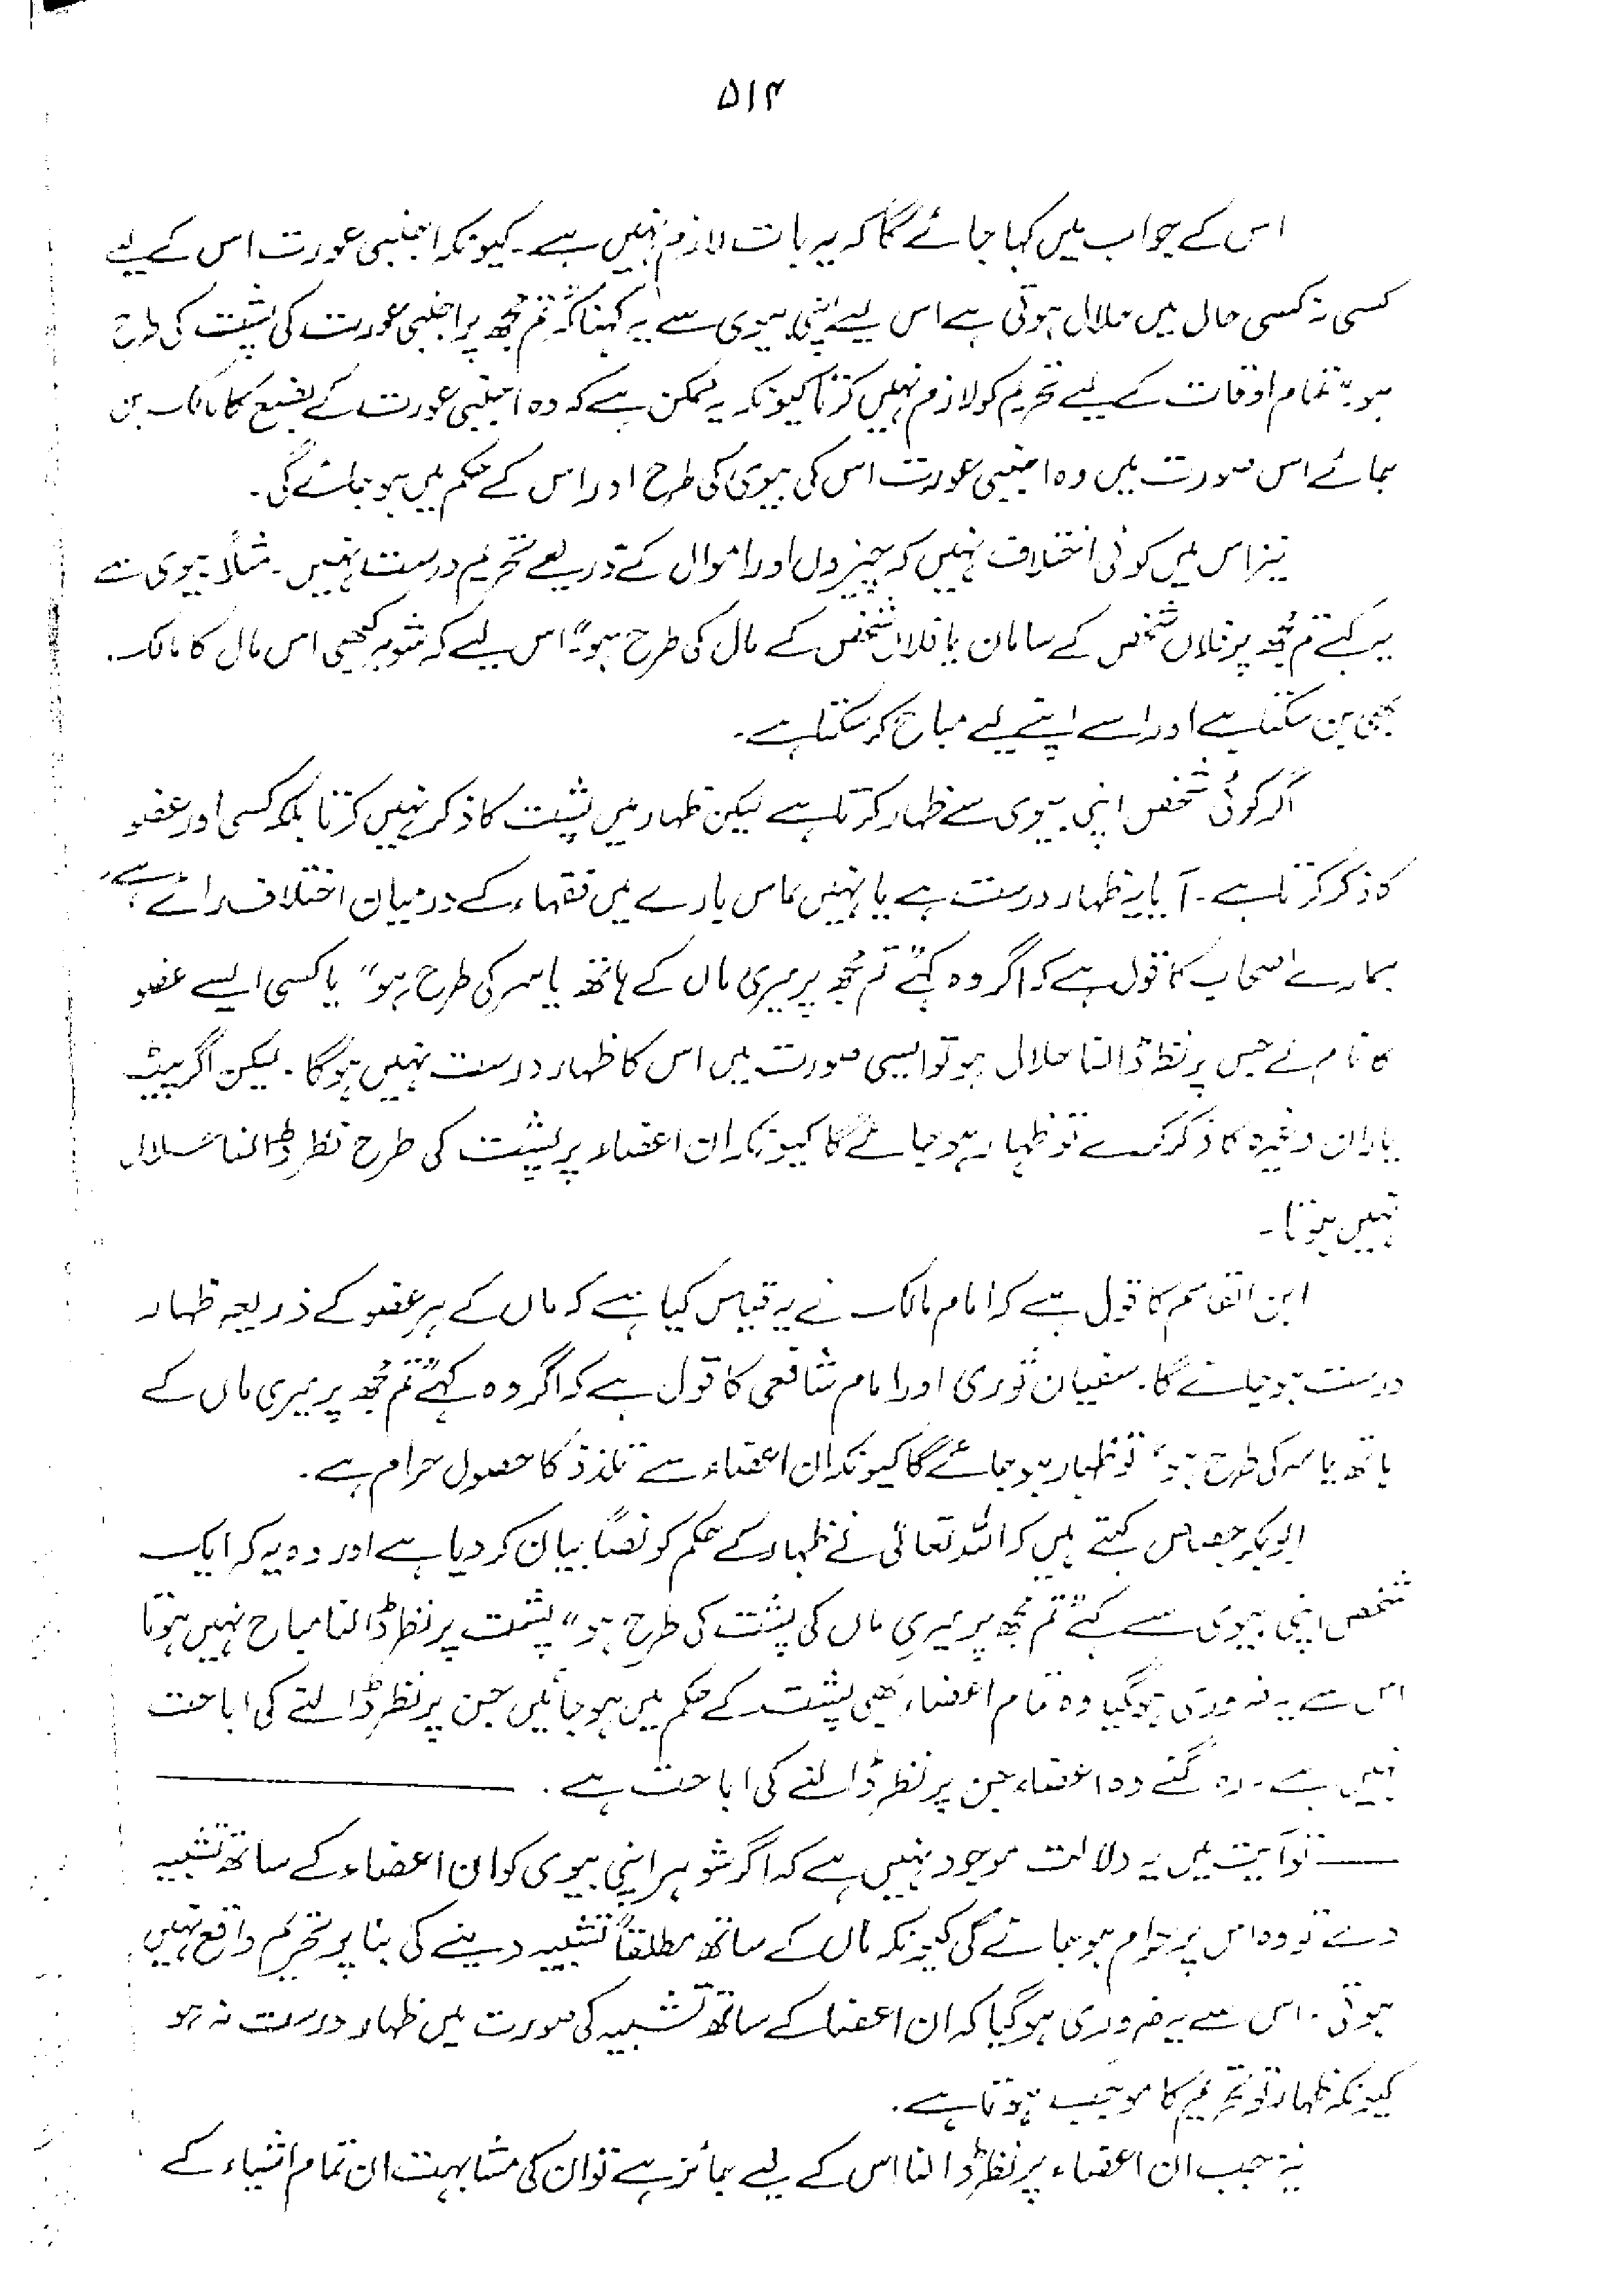 ۵۱۴
اس کے جواب میں کہا جائے گا کہ یہ بات لازم نہیں ہے۔ کیونکہ اجنبی عورت اس کے لیے
کسی نہ کسی حال میں حلال ہوتی ہے اس لیے اپنی بیوی سے یہ کہنا کہ "تم مجھ پر اجنبی عورت کی پشت کی طرح
ہو" تمام اوقات کے لیے تحریم کو لازم نہیں کرتا کیونکہ یہ ممکن ہے کہ وہ اجنبی عورت کے بضع کا مالک بن
جائے اس صورت میں وہ اجنبی عورت اس کی بیوی کی طرح اور اس کے حکم میں ہو جائے گی۔
نیز اس میں کوئی اختلاف نہیں کہ چیزوں اور اموال کے ذریعے تحریم درست نہیں۔ مثلاً بیوی سے
یہ کہے تم مجھ پر فلاں شخص کے سامان یا فلاں شخص کے مال کی طرح ہو"۔ اس لیے کہ شوہر کبھی اس مال کا مالک
بھی بن سکتا ہے اور اسے اپنے لیے مباح کر سکتا ہے۔
اگر کوئی شخص اپنی بیوی سے ظہار کرتا ہے لیکن ظہار میں پشت کا ذکر نہیں کرتا بلکہ کسی اور عضو
کا ذکر کرتا ہے۔ آیا یہ ظہار درست ہے یا نہیں، اس بارے میں فقہاء کے درمیان اختلاف رائے ہے،
ہمارے اصحاب کا قول ہے کہ اگر وہ کہے "تم مجھ پر میری ماں کے ہاتھ یا سر کی طرح ہو" یا کسی ایسے عضو
کا نام لے جس پر نظر ڈالنا حلال ہو تو ایسی صورت میں اس کا ظہار درست نہیں ہوگا۔ لیکن اگر پیٹ
یا ران وغیرہ کا ذکر کرے تو ظہار ہو جائے گا کیونکہ ان اعضاء پر پشت کی طرح نظر ڈالنا حلال
نہیں ہوتا۔
ابن القاسم کا قول ہے کہ امام مالک نے یہ قیاس کیا ہے کہ ماں کے ہر عضو کے ذریعہ ظہار
درست ہو جائے گا۔ سفیان ثوری اور امام شافعی کا قول ہے کہ اگر وہ کہے "تم مجھ پر میری ماں کے
ہاتھ یا سر کی طرح ہو" تو ظہار ہو جائے گا کیونکہ ان اعضاء سے تلذذ کا حصول حرام ہے۔
ابوبکر جصاص کہتے ہیں کہ اللہ تعالیٰ نے ظہار کے حکم کو نصاً بیان کر دیا ہے اور وہ یہ کہ ایک
شخص اپنی بیوی سے کہے "تم مجھ پر میری ماں کی پشت کی طرح ہو" پشت پر نظر ڈالنا مباح نہیں ہوتا
اس سے یہ ضروری ہوگیا وہ تمام اعضاء بھی پشت کے حکم میں ہو جائیں جن پر نظر ڈالنے کی اباحت
نہیں ہے۔ رہ گئے وہ اعضاء جن پر نظر ڈالنے کی اباحت ہے۔
تو آیت میں یہ دلالت موجود نہیں ہے کہ اگر شوہر اپنی بیوی کو ان اعضاء کے ساتھ تشبیہ
دے تو وہ اس پر حرام ہو جائے گی کیونکہ ماں کے ساتھ مطلقاً تشبیہ دینے کی بنا پر تحریم واقع نہیں
ہوتی۔ اس سے یہ ضروری ہوگیا کہ ان اعضاء کے ساتھ تشبیہ کی صورت میں ظہار درست نہ ہو
کیونکہ ظہار تو تحریم کا موجب ہوتا ہے۔
نیز جب ان اعضاء پر نظر ڈالنا اس کے لیے جائز ہے تو ان کی مشابہت ان تمام اشیاء کے